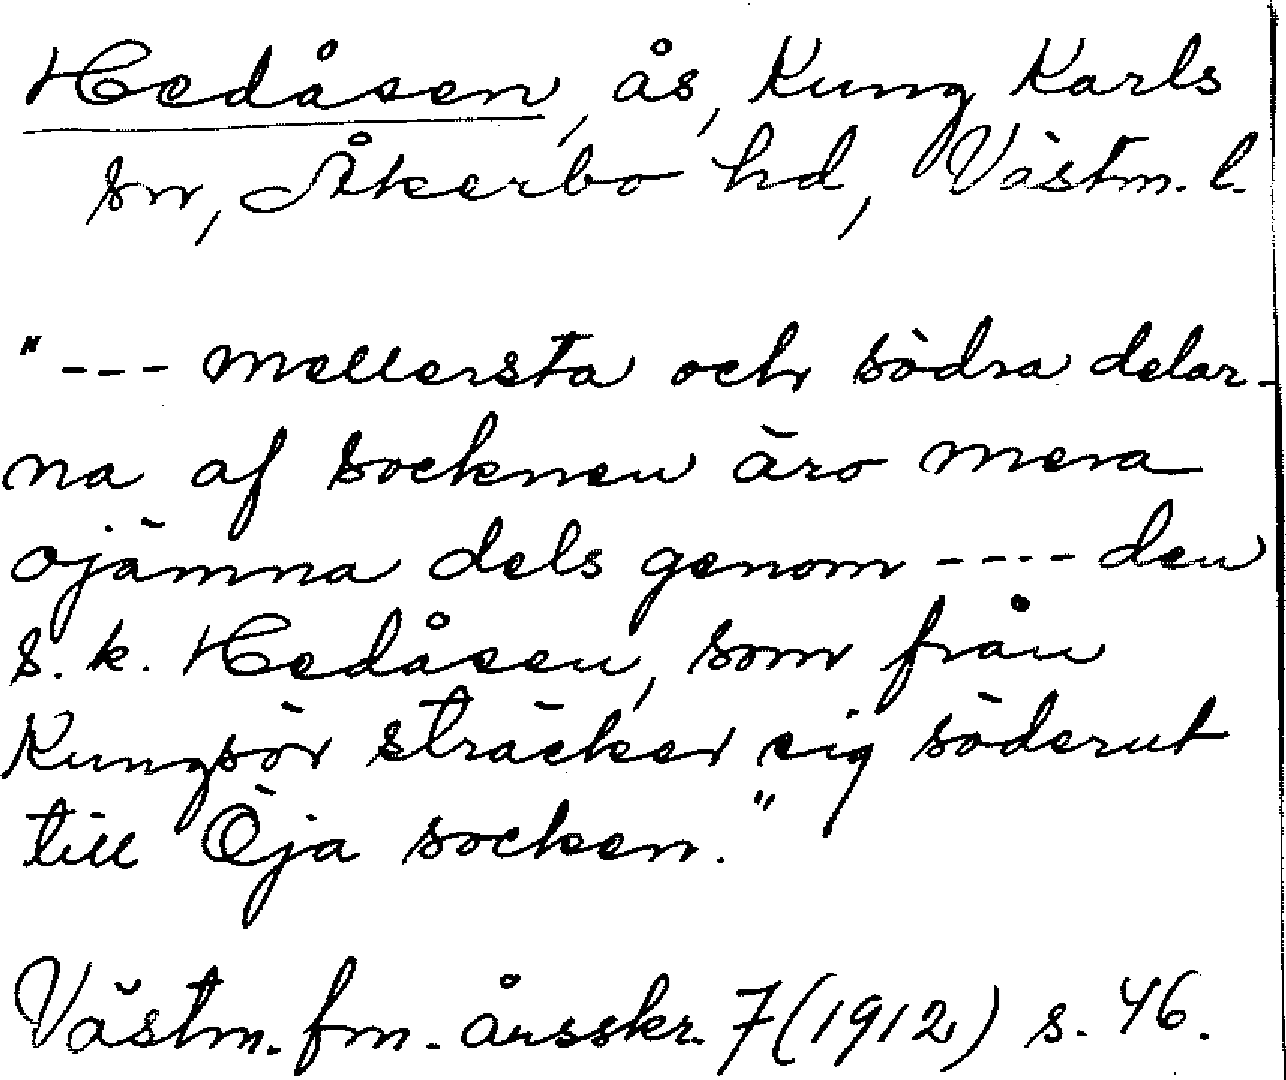 Hedåsen, ås, Kung Karls
sn, Åkerbo hd, Västm. l.
"--- mellersta och södra delar-
na af socknen äro mera
ojämna dels genom ---- den
s. k. Hedåsen, som från
Kungsör sträcker sig söderut
till Öja socken."
Västm. fm. årsskr. 7 (1912) s. 46.